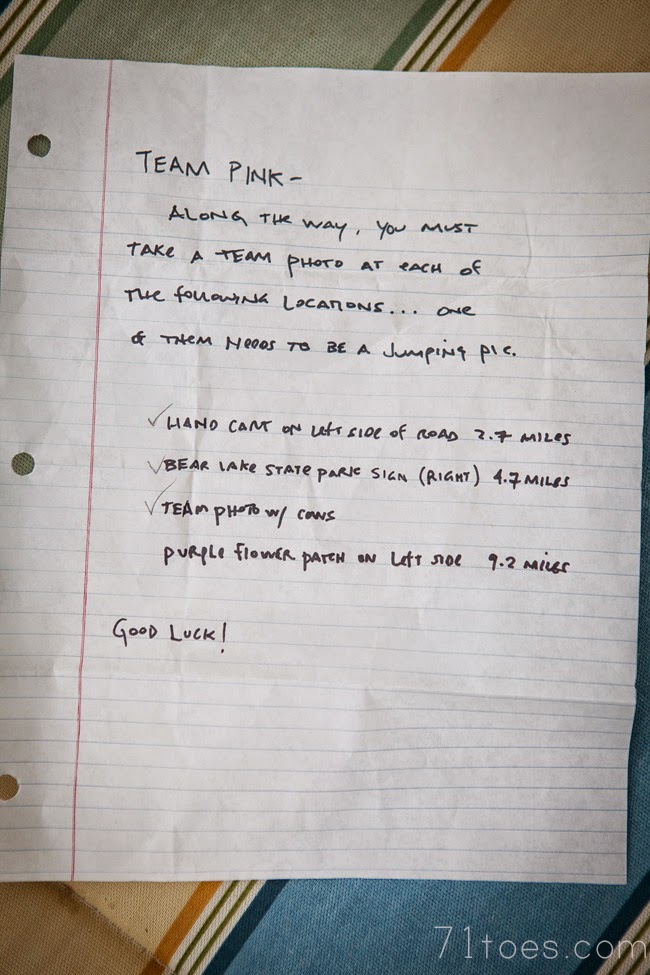 TEAM PINK -
ALONG THE WAY, YOU MUST
TAKE A TEAM PHOTO AT EACH OF
THE FOLLOWING LOCATIONS... ONE
OF THEM NEEDS TO BE A JUMPING PIC.
✓ HAND CART ON LEFT SIDE OF ROAD 2.7 MILES
✓ BEAR LAKE STATE PARK SIGN (RIGHT) 4.7 MILES
✓ TEAM PHOTO W/ COWS
PURPLE FLOWER PATCH ON LEFT SIDE 9.2 MILES
GOOD LUCK!
71toes.com